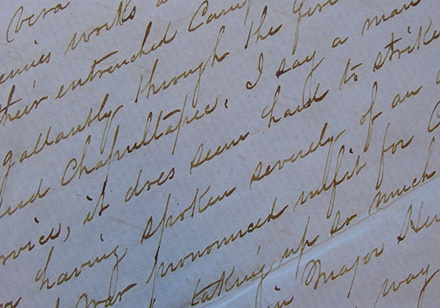 Vera
enemies works a
their entrenched Camp
gallantly through the five
and Chapultapec, I say a man
service, it does seem hard to strike
for having spoken severely of an
War pronounced unfit for C
taking up so much
in Major Hen
way